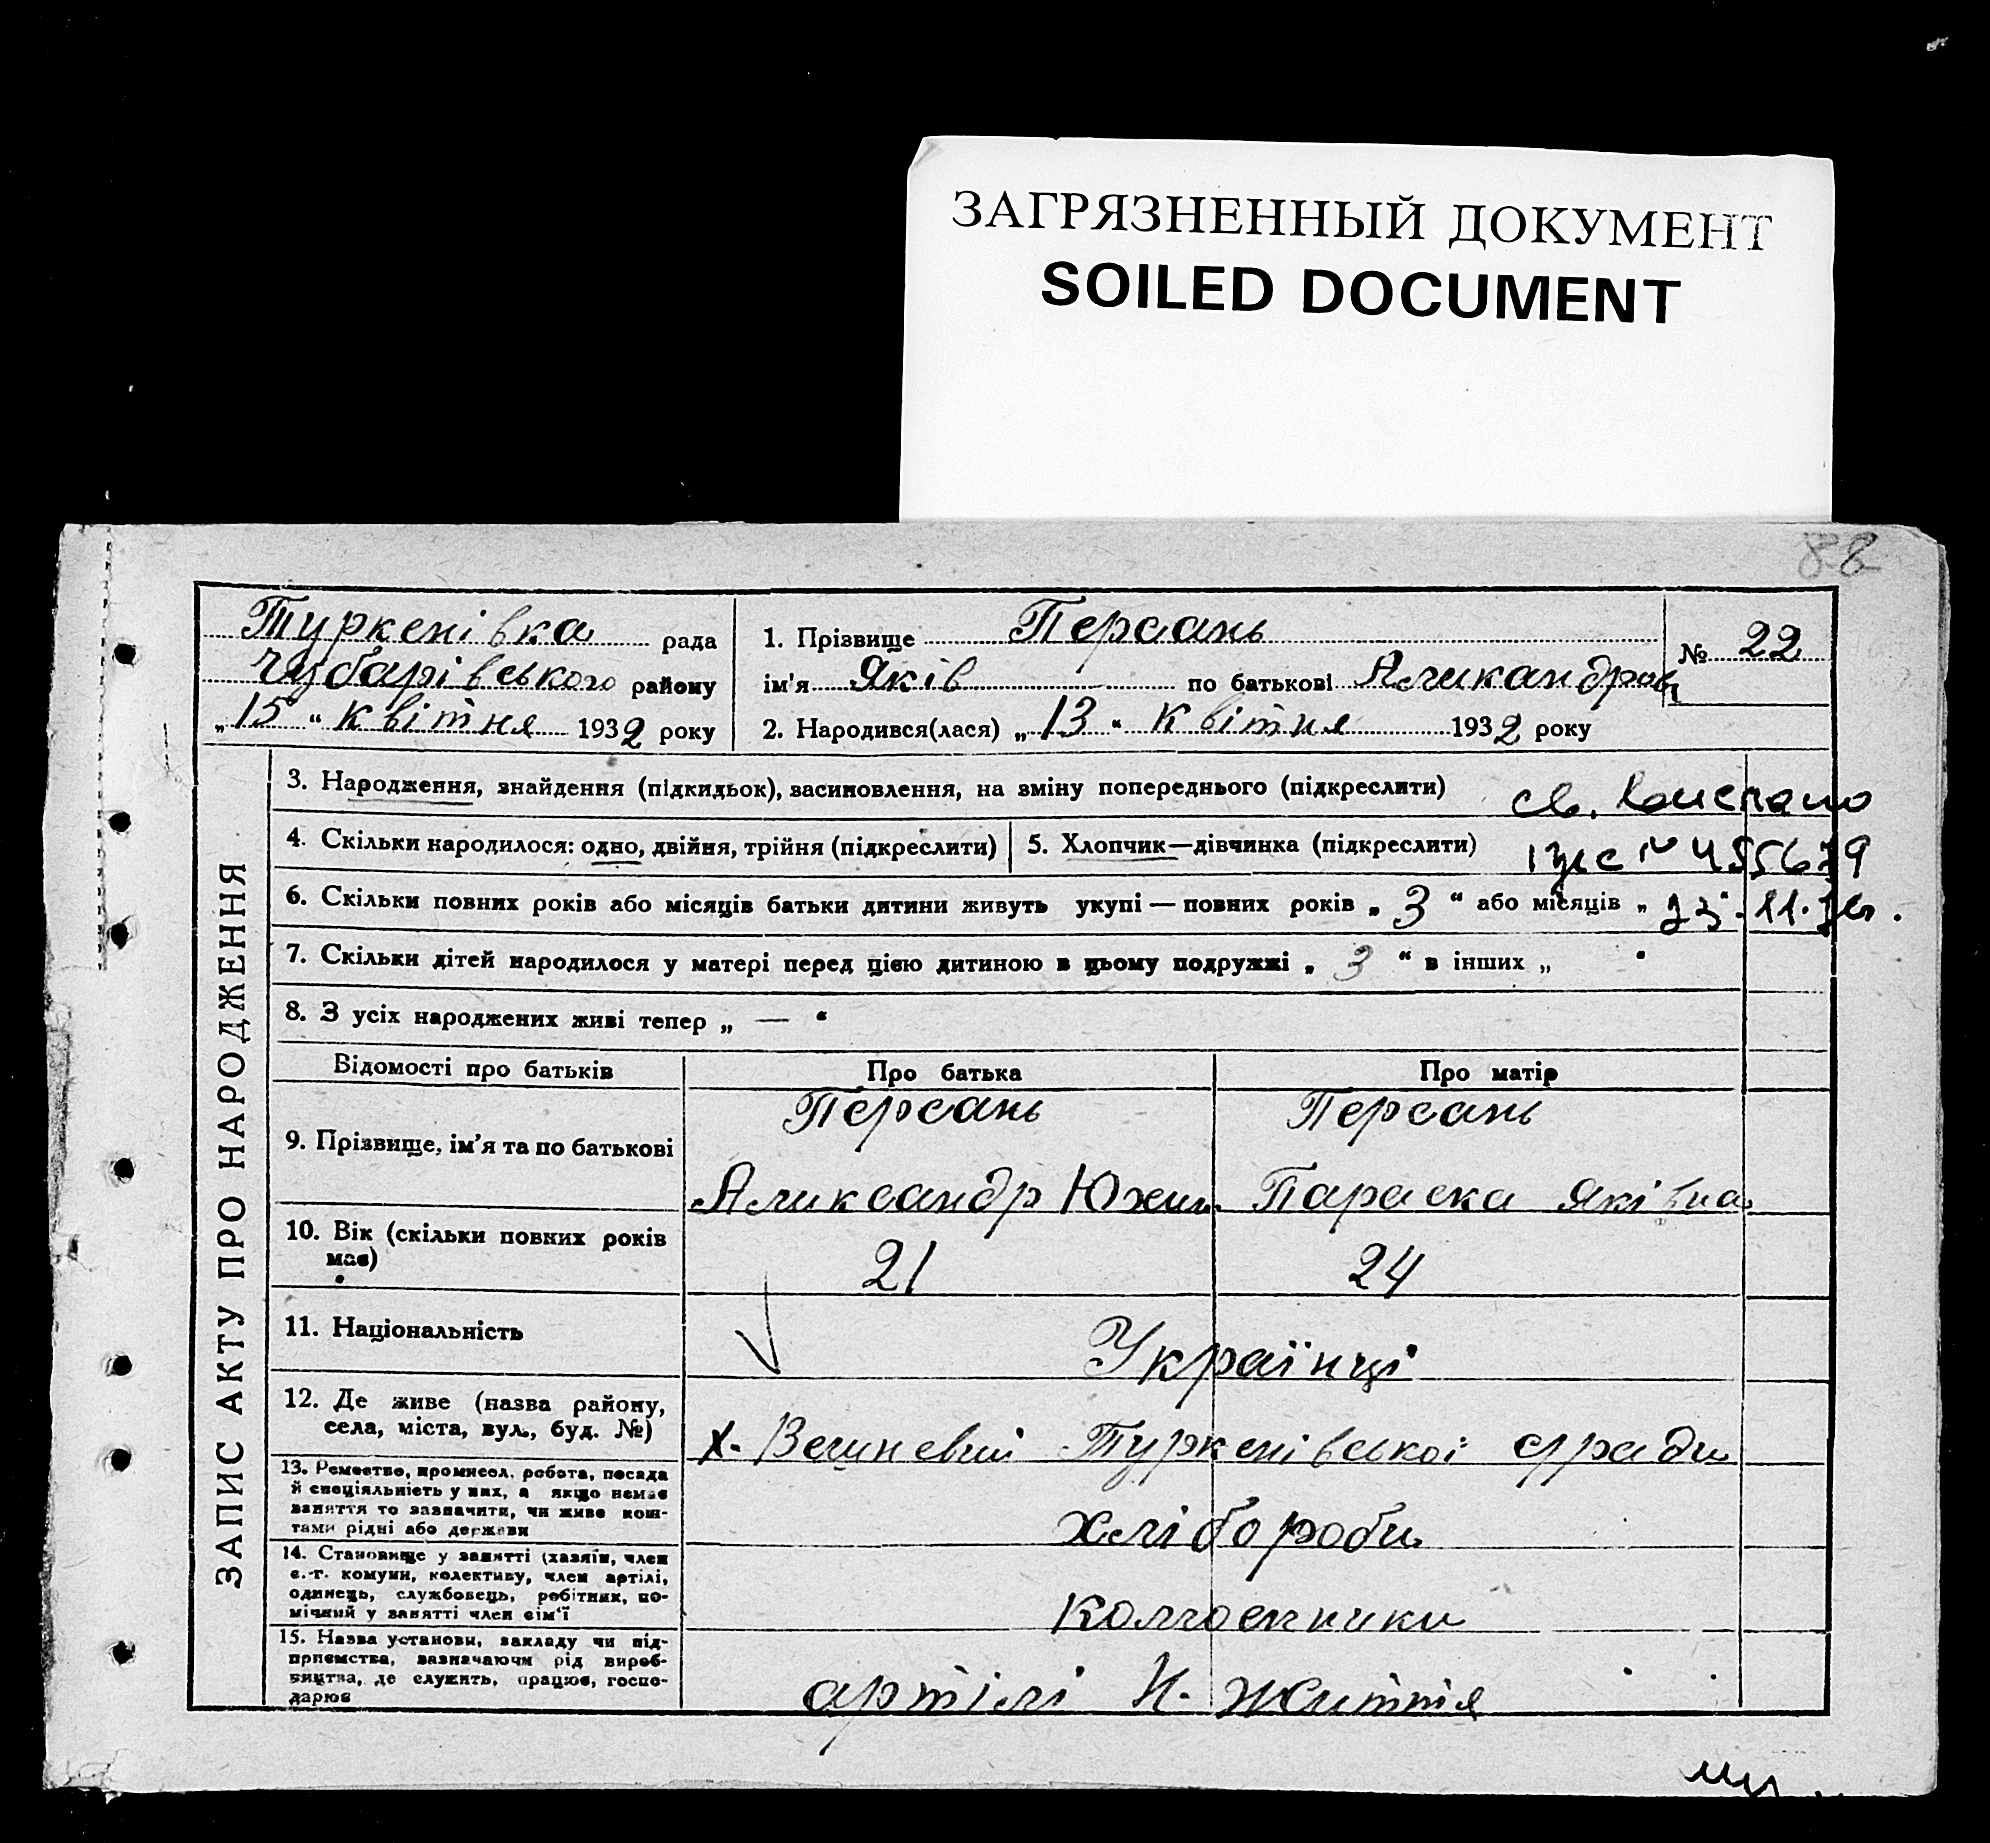 ЗАГРЯЗНЕННЫЙ ДОКУМЕНТ
SOILED DOCUMENT
88
ЗАПИС АКТУ ПРО НАРОДЖЕННЯ
Туркенівка рада
Чубарівського району
„15“ квітня 1932 року
1. Прізвище Персань
ім'я Яків по батькові Аликандров
2. Народився(лася) „13“ квітня 1932 року
№ 22
3. Народження, знайдення (підкидьок), засиновлення, на зміну попереднього (підкреслити)
4. Скільки народилося: одно, двійня, трійня (підкреслити)
5. Хлопчик—дівчинка (підкреслити)
6. Скільки повних років або місяців батьки дитини живуть укупі — повних років „3“ або місяців „
7. Скільки дітей народилося у матері перед цією дитиною в цьому подружжі „3“ в інших „ “
8. З усіх народжених живі тепер „ — “
Відомості про батьків
Про батька
Про матір
9. Прізвище, ім'я та по батькові
Персань
Аликсандр Юхим.
Персань
Параска Яківна
10. Вік (скільки повних років
має)
21
24
11. Національність
Українці
12. Де живе (назва району,
села, міста, вул., буд. №)
х. Вешневий Туркенівської с/ради
13. Ремество, промисел, робота, посада
й спеціяльність у них, а якщо немає
заняття то зазначити, чи живе кош-
тами рідні або держави
хлібороби
14. Становище у занятті (хазяїн, член
с.-г. комуни, колективу, член артілі,
одинець, службовець, робітник, по-
мічний у занятті член сім'ї
колгоспники
15. Назва установи, закладу чи під-
приємства, зазначаючи рід вироб-
ництва, де служить, працює, госпо-
дарює
артілі Н. життя